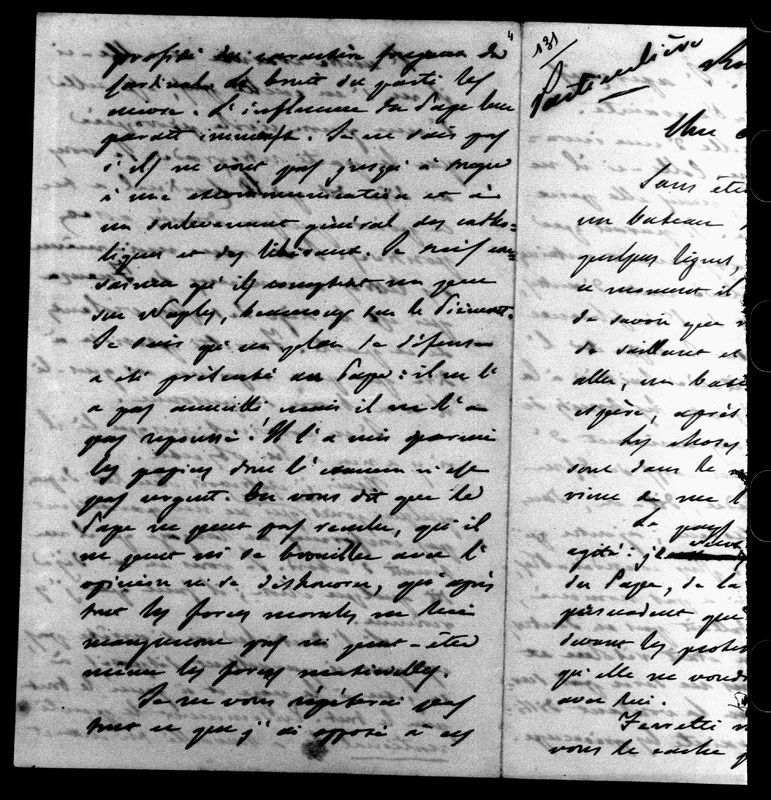 4
profité du caractère fougueux du
Cardinal. Le bruit du parti les
enivre. L'influence du Pape leur
paraît immense. Je ne sais pas
s'ils ne vont pas jusqu'à songer
à une excommunication et à
un soulèvement général des catho-
liques et des libéraux. Je suis con-
vaincu qu'ils comptent un peu
sur Naples, beaucoup sur le Piémont.
Je sais qu'un plan de défense
a été présenté au Pape: il ne l'
a pas accueilli, mais il ne l'a
pas repoussé. Il l'a mis parmi
les papiers dont l'examen n'est
pas urgent. On vous dit que le
Pape ne peut pas reculer, qu'il
ne peut ni se brouiller avec l'
opinion ni se déshonorer, qu'après
tout les forces morales ne lui
manqueront pas ni peut-être
même les forces matérielles.
Je ne vous répéterai pas
tout ce que j'ai opposé à ces
131
Particulière
Mon c
Sans être
un bateau
quelques lignes,
ce moment il
de savoir que
de saillant et
aller, un bate
espère, après
Les choses
sont dans le
vient de me l
Le pays
agité:
du Pape, de la
persuadent que
devant les protes
qu'elle ne voudr
avec lui.
Ferretti
vous le cache